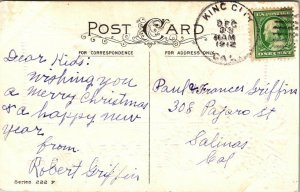 POST CARD
KING CITY
DEC
23
8 AM
1912
CAL.
FOR CORRESPONDENCE
FOR ADDRESS ONLY
Dear Kids:
wishing you
a merry Christmas
& a happy new
year
from
Robert Griffin
Paul & Frances Griffin
308 Pajaro St
Salinas
Cal
Series 222 F